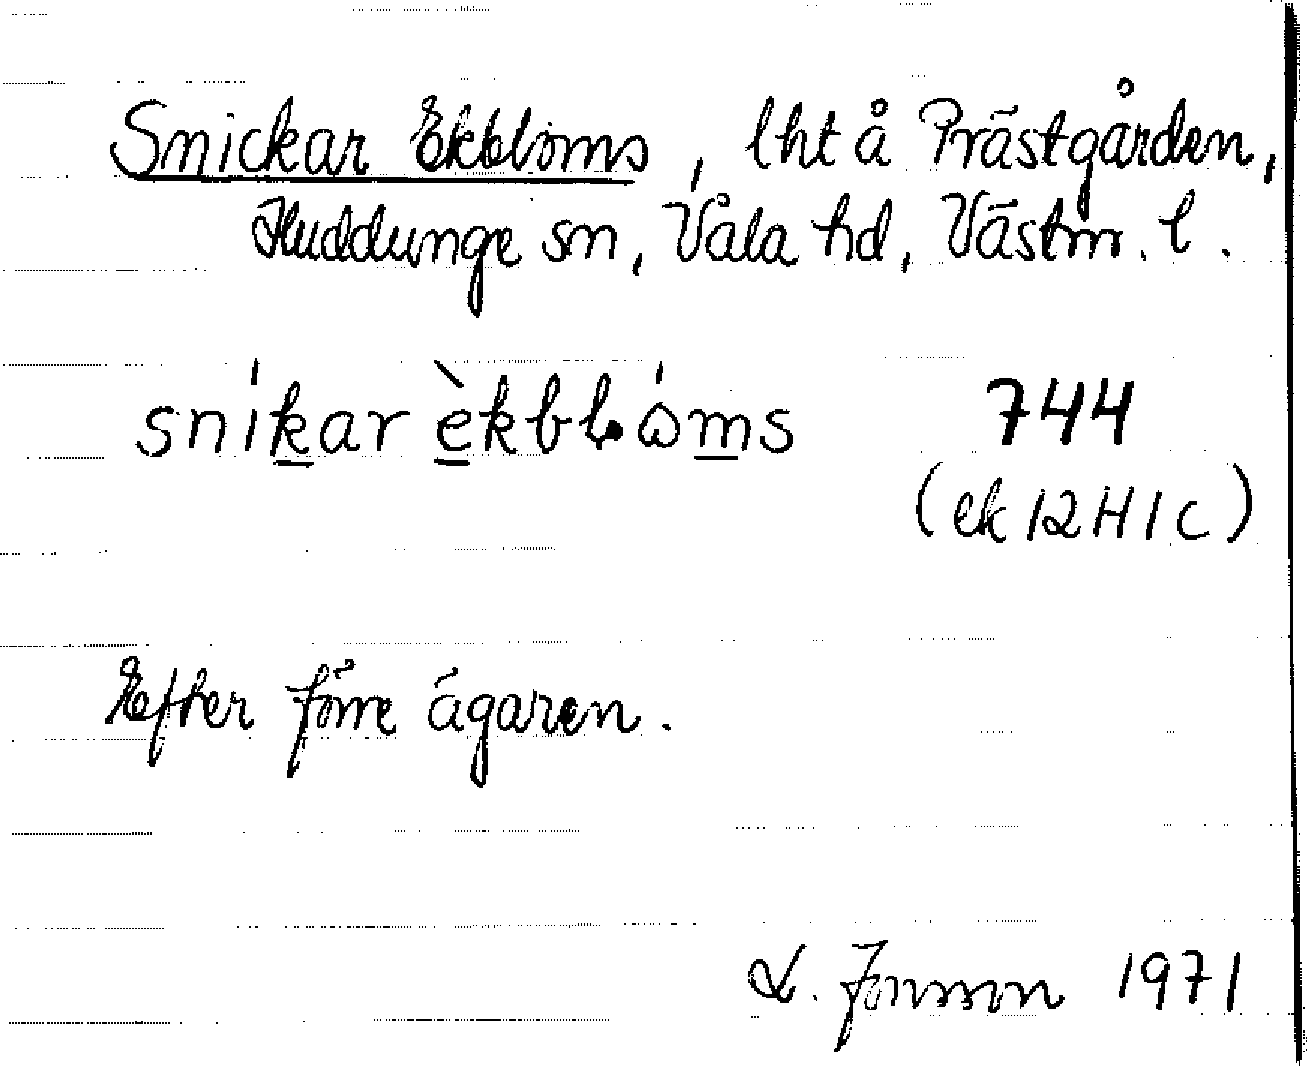 Snickar Ekbloms, lht å Prästgården,
Huddunge sn, Våla hd, Västm. l.
snikar èkbloms 744
(ek 12H1c)
Efter förre ägaren.
L. Jonsson 1971